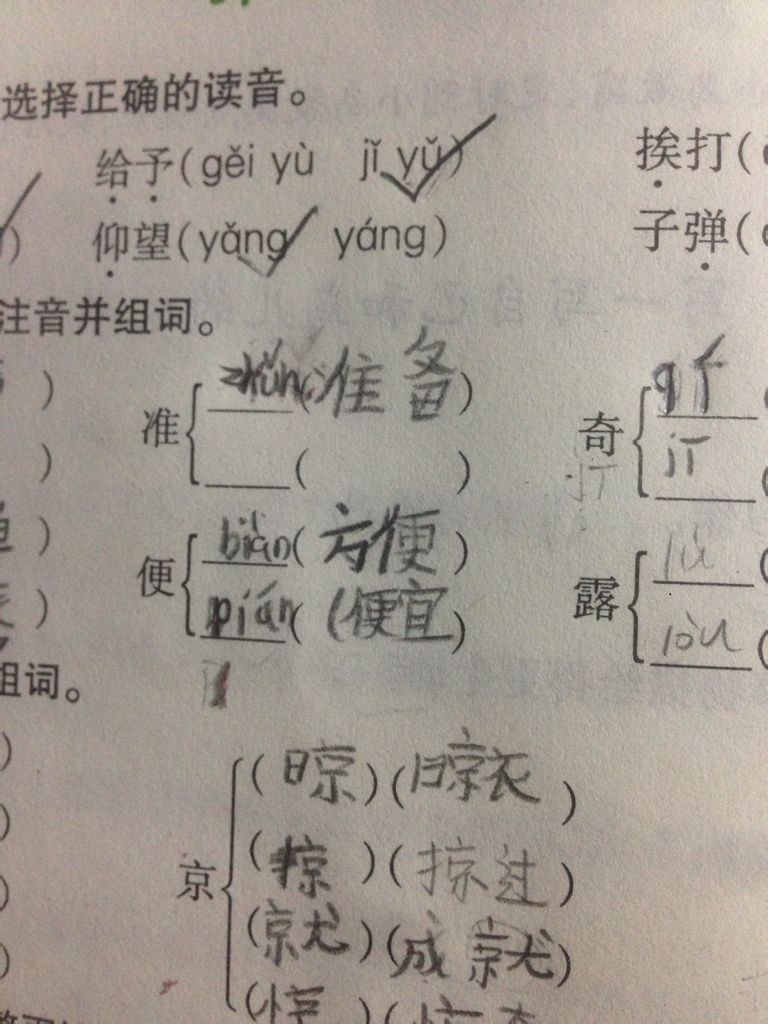 选择正确的读音。
给予(gěi yù jǐ yǔ) 挨打(
仰望(yǎng yáng) 子弹(
注音并组词。
准 zhǔn(准备)
( )
奇 qí(
jī(
便 biàn(方便)
pián(便宜)
露 lù(
lòu(
组词。
京 (晾)(晾衣)
(掠)(掠过)
(就)(成就)
(惊)(